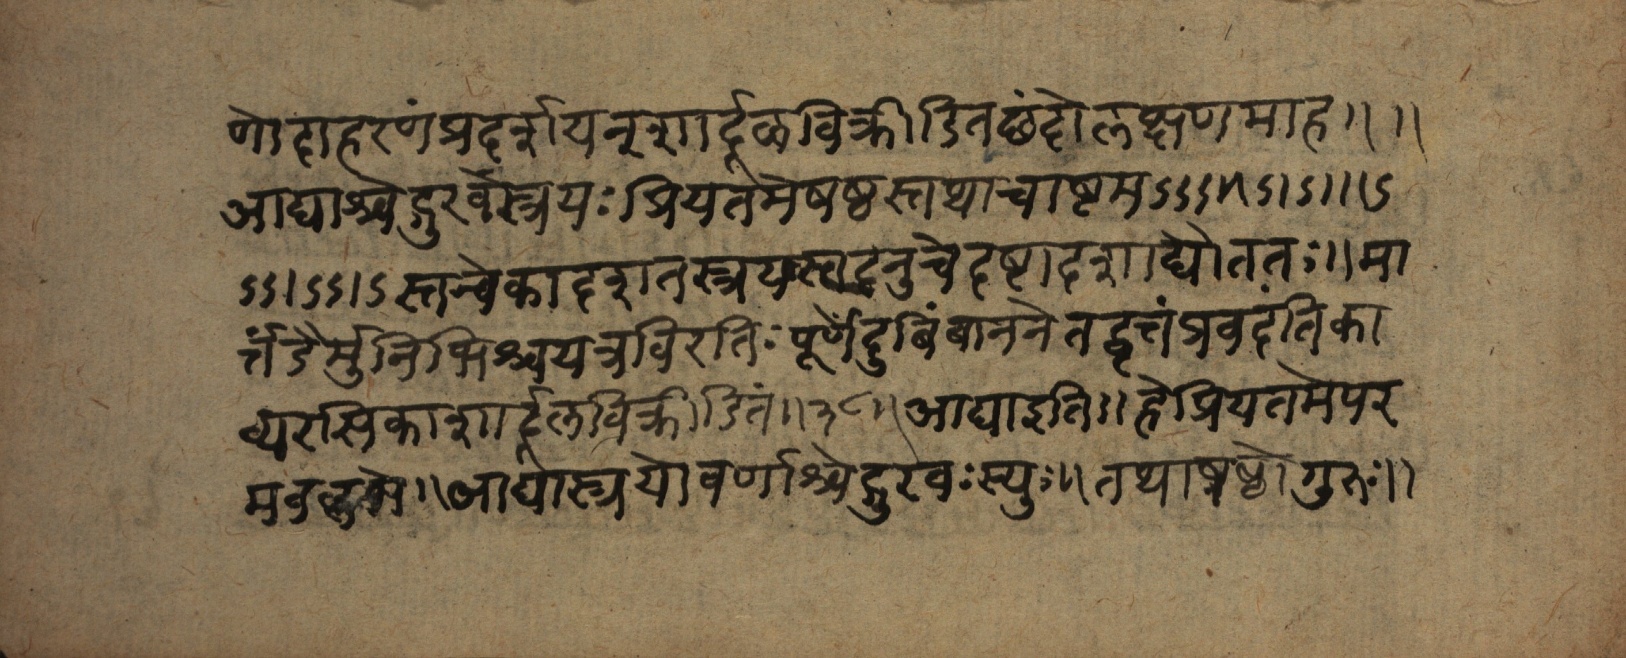 णोदाहरणंप्रदर्शयन्शार्दूळविक्रीडितछंदोलक्षणमाह॥ ॥
आद्याश्चेद्गुरवस्त्रयःप्रियतमेषष्ठस्तथाचाष्टमऽऽऽ॥ऽ।ऽ॥।ऽ
ऽऽ।ऽऽ।ऽस्तन्वेकादशतस्त्रयस्तदनुचेदष्टादशाद्यौततः॥मा
र्त्तंडैर्मुनिभिश्चयत्रविरतिःपूर्णेंदुबिंबाननेतद्वृत्तंप्रवदंतिका
व्यरसिकाशार्दूलविक्रीडितं॥३९॥आद्याइति॥हेप्रियतमेपर
मवल्लभे॥आद्यास्त्रयोवर्णाश्चेद्गुरवःस्युः॥तथाषष्ठोगुरुः॥